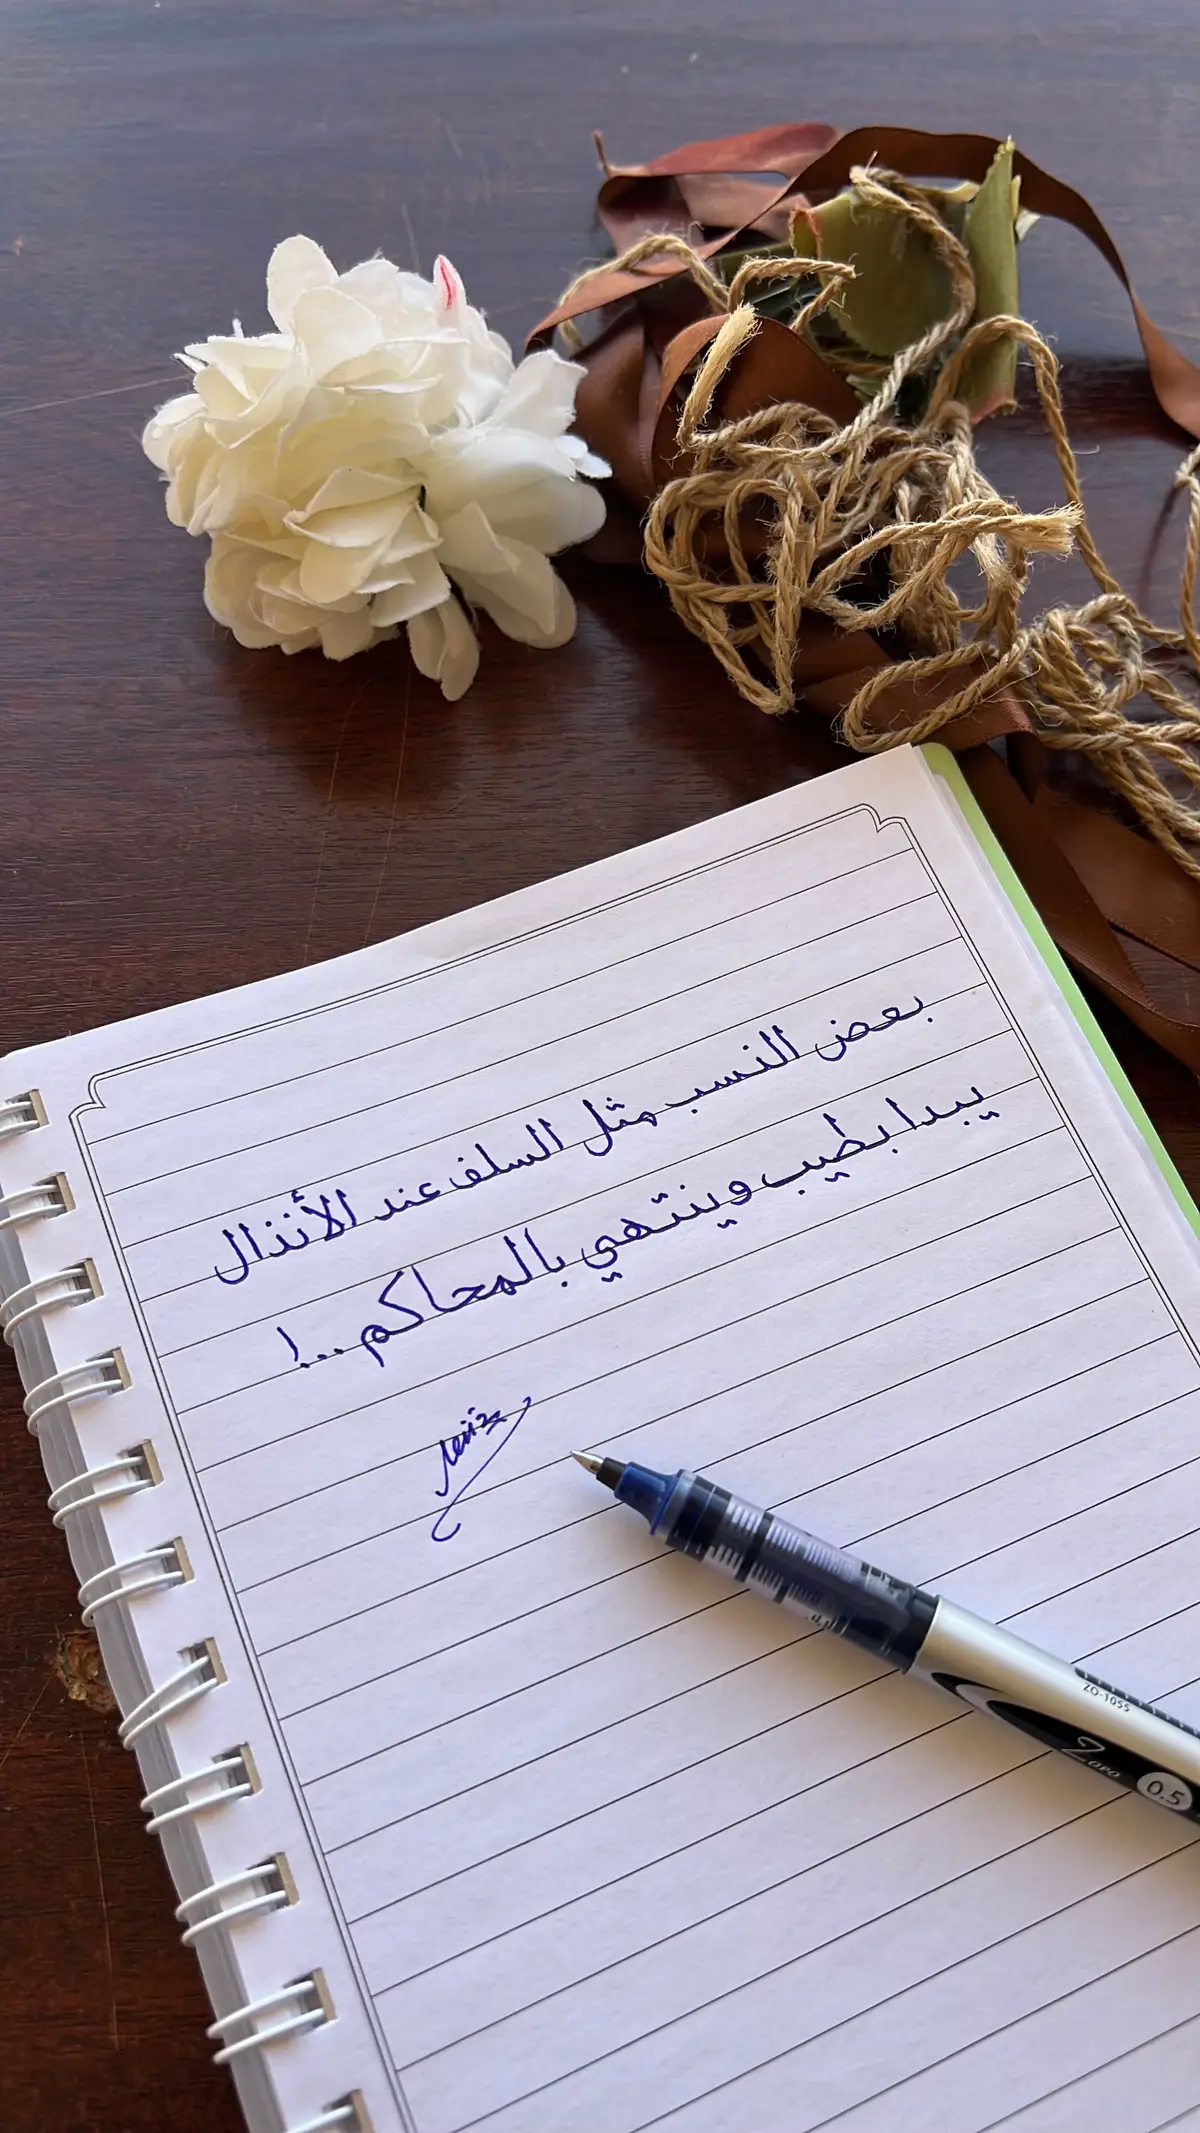 بعض النسب مثل السلف عند الأنذال
يبدا بطيب وينتهي بالمحاكم...!
ZO-1055
Zoro
0.5